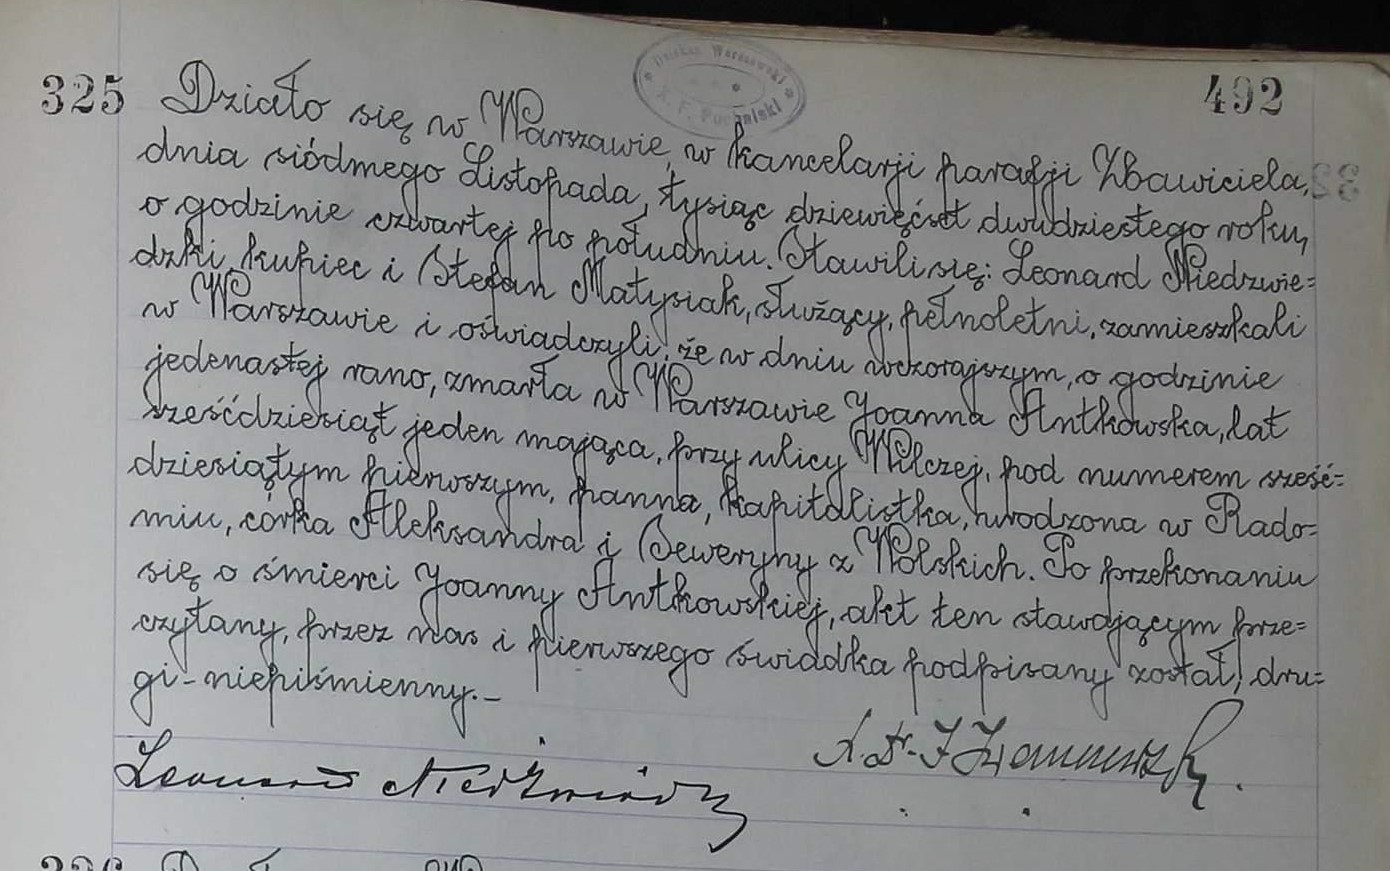 Dziekan Warszawski
X. F. Puchalski
325
492
Działo się w Warszawie, w kancelarji parafji Zbawiciela,
dnia siódmego Listopada, tysiąc dziewięćset dwudziestego roku,
o godzinie czwartej po południu. Stawili się: Leonard Niedzwie=
dzki kupiec i Stefan Matysiak, służący, pełnoletni, zamieszkali
w Warszawie i oświadczyli, że w dniu wczorajszym, o godzinie
jedenastej rano, zmarła w Warszawie Joanna Antkowska, lat
sześćdziesiąt jeden mająca, przy ulicy Wilczej, pod numerem sześć=
dziesiątym pierwszym, panna, kapitalistka, urodzona w Rado=
miu, córka Aleksandra i Seweryny z Wolskich. Po przekonaniu
się o śmierci Joanny Antkowskiej, akt ten stawającym prze=
czytany, przez nas i pierwszego świadka podpisany został, dru=
gi - niepiśmienny. -
Leonard Niedźwiedzki